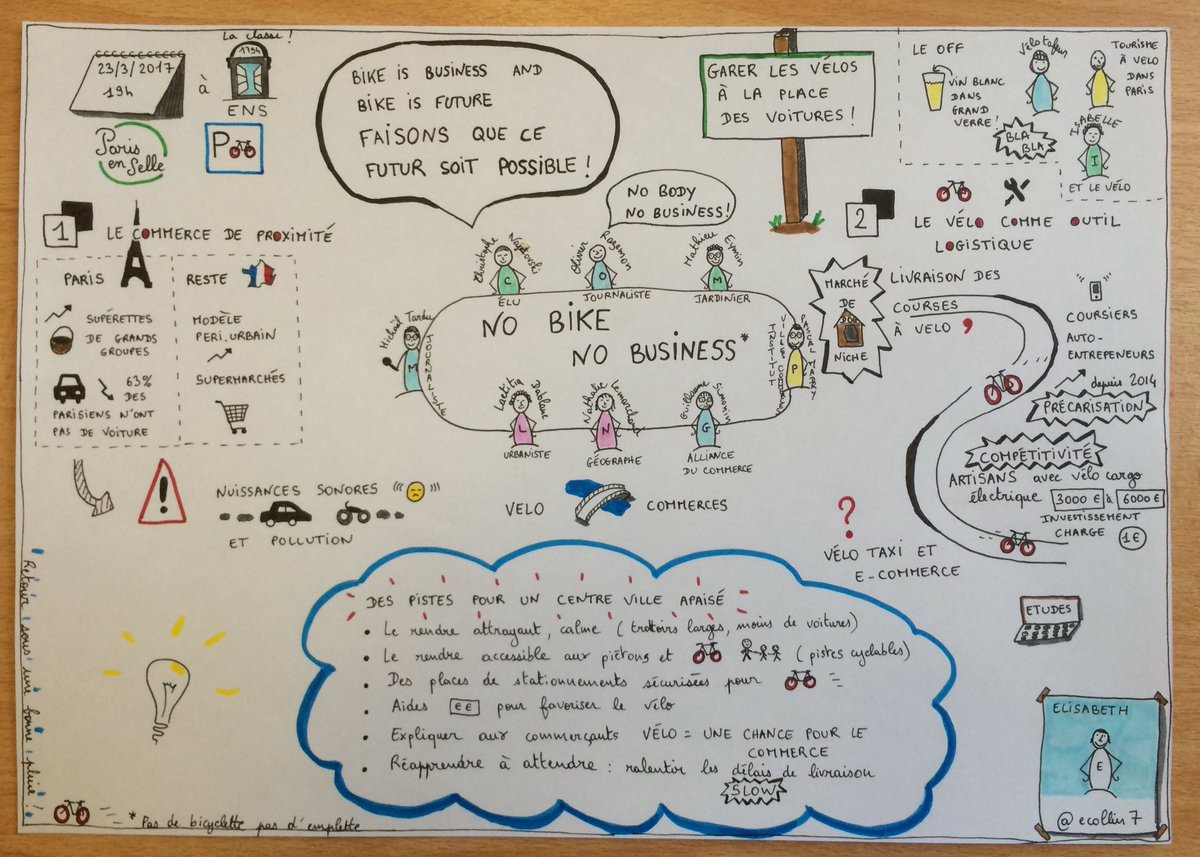 23/3/2017
19h
à
La classe !
1794
ENS
Paris
en Selle
P
BIKE IS BUSINESS AND
BIKE IS FUTURE
FAISONS QUE CE
FUTUR SOIT POSSIBLE !
NO BODY
NO BUSINESS !
GARER LES VÉLOS
À LA PLACE
DES VOITURES !
LE OFF
VIN BLANC
DANS
GRAND
VERRE !
Vélotafeur
TOURISME
À VELO
DANS
PARIS
BLA
BLA
ISABELLE
I
ET LE VÉLO
1 LE COMMERCE DE PROXIMITÉ
PARIS
SUPÉRETTES
DE GRANDS
GROUPES
63%
DES
PARISIENS N'ONT
PAS DE VOITURE
RESTE
MODÈLE
PERI.URBAIN
SUPERMARCHÉS
NUISSANCES SONORES
ET POLLUTION
Christophe Najdovski
C
ÉLU
Olivier Razemon
O
JOURNALISTE
Mathieu Eymin
M
JARDINIER
Michaël Tardu
M
INSTITUT
VILLE COMM
PASCAL MADRY
P
NO BIKE
NO BUSINESS*
Laetitia Dablanc
L
URBANISTE
Nathalie Lemarchand
N
GÉOGRAPHE
Guillaume Simonin
G
ALLIANCE
DU COMMERCE
VELO
COMMERCES
2 LE VÉLO COMME OUTIL
LOGISTIQUE
MARCHÉ
DE
NICHE
LIVRAISON DES
COURSES
À VELO
COURSIERS
AUTO-
ENTREPENEURS
depuis 2014
PRÉCARISATION
COMPÉTITIVITÉ
ARTISANS avec vélo cargo
électrique 3000 € à 6000 €
INVESTISSEMENT
CHARGE 1€
?
VÉLO TAXI ET
E-COMMERCE
ETUDES
DES PISTES POUR UN CENTRE VILLE APAISÉ
• Le rendre attrayant, calme (trottoirs larges, moins de voitures)
• Le rendre accessible aux piétons et (pistes cyclables)
• Des places de stationnements sécurisées pour
• Aides €€ pour favoriser le vélo
• Expliquer aux commerçants VÉLO = UNE CHANCE POUR LE
COMMERCE
• Réapprendre à attendre : ralentir les délais de livraison
SLOW
Retour sous une bonne pluie !
* Pas de bicyclette pas d'emplette
ELISABETH
E
@ecollin7